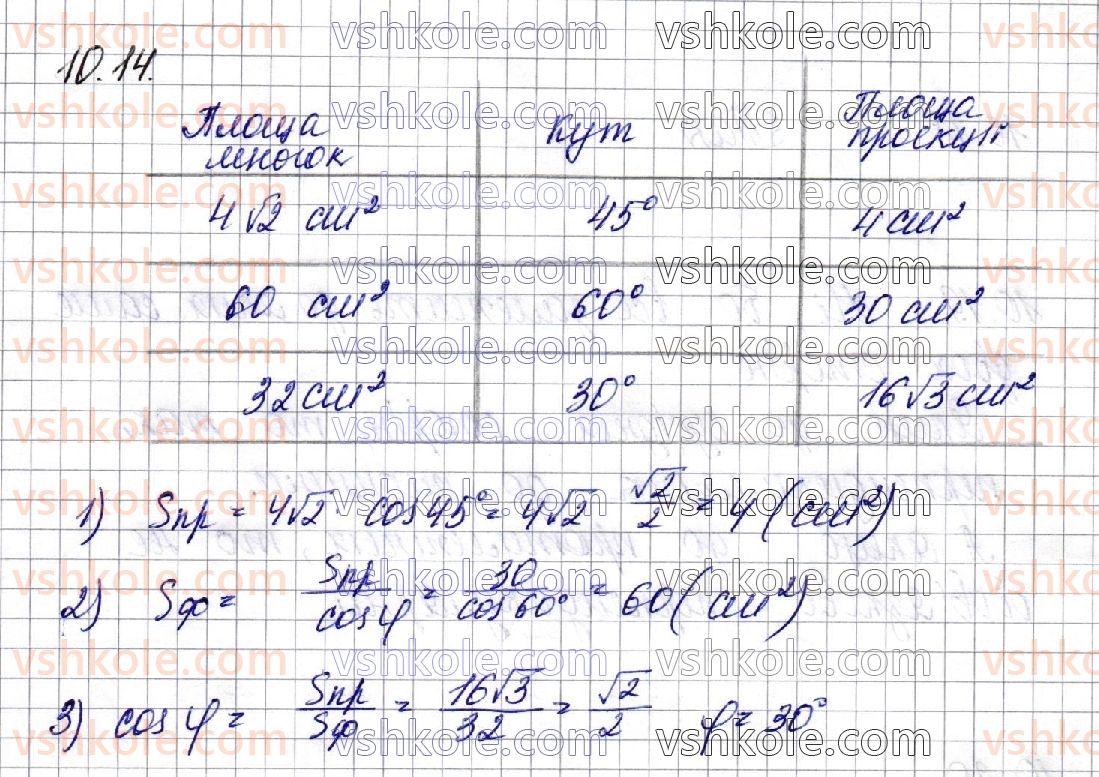 10.14.
Площа многок | Кут | Площа проекції
4√2 см² | 45° | 4 см²
60 см² | 60° | 30 см²
32 см² | 30° | 16√3 см²
1) Sпр = 4√2 cos 45° = 4√2 √2/2 = 4 (см²)
2) Sф = Sпр/cosφ = 30/cos 60° = 60 (см²)
3) cosφ = Sпр/Sф = 16√3/32 = √2/2 φ = 30°
vshkole.com